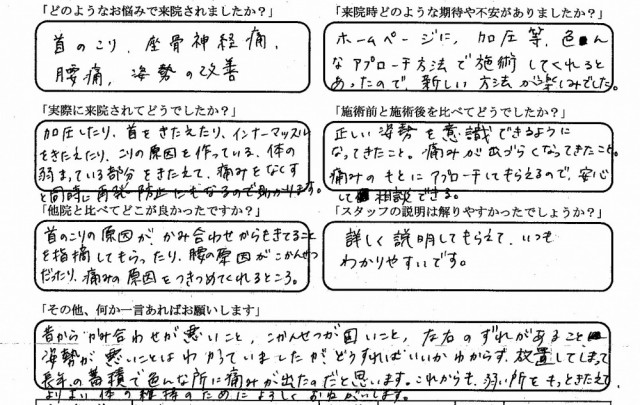 「どのようなお悩みで来院されましたか？」
首のこり、座骨神経痛、
腰痛、姿勢の改善
「来院時どのような期待や不安がありましたか？」
ホームページに、加圧等、色ん
なアプローチ方法で施術してくれると
あったので、新しい方法が楽しみでした。
「実際に来院されてどうでしたか？」
加圧したり、首をきたえたり、インナーマッスル
をきたえたり、こりの原因を作っている、体の
弱まっている部分をきたえて、痛みをなくす
と同時に再発防止にもなるので助かります。
「施術前と施術後を比べてどうでしたか？」
正しい姿勢を意識できるように
なってきたこと。痛みが出づらくなってきたこと。
痛みのもとにアプローチしてもらえるので、安心
して相談できる。
「他院と比べてどこが良かったですか？」
首のこりの原因が、かみ合わせからもきてること
を指摘してもらったり、腰の原因がこかんせつ
だったり、痛みの原因をつきつめてくれるところ。
「スタッフの説明は解りやすかったでしょうか？」
詳しく説明してもらえて、いつも
わかりやすいです。
「その他、何か一言あればお願いします」
昔からかみ合わせが悪いこと、こかんせつが固いこと、左右のずれがあること
姿勢が悪いことはわかっていましたがどうすればいいかわからず、放置してしまって
長年の蓄積で色んな所に痛みが出たのだと思います。これからも、弱い所をもっときたえて
よりよい体の維持のためによろしくおねがいします。